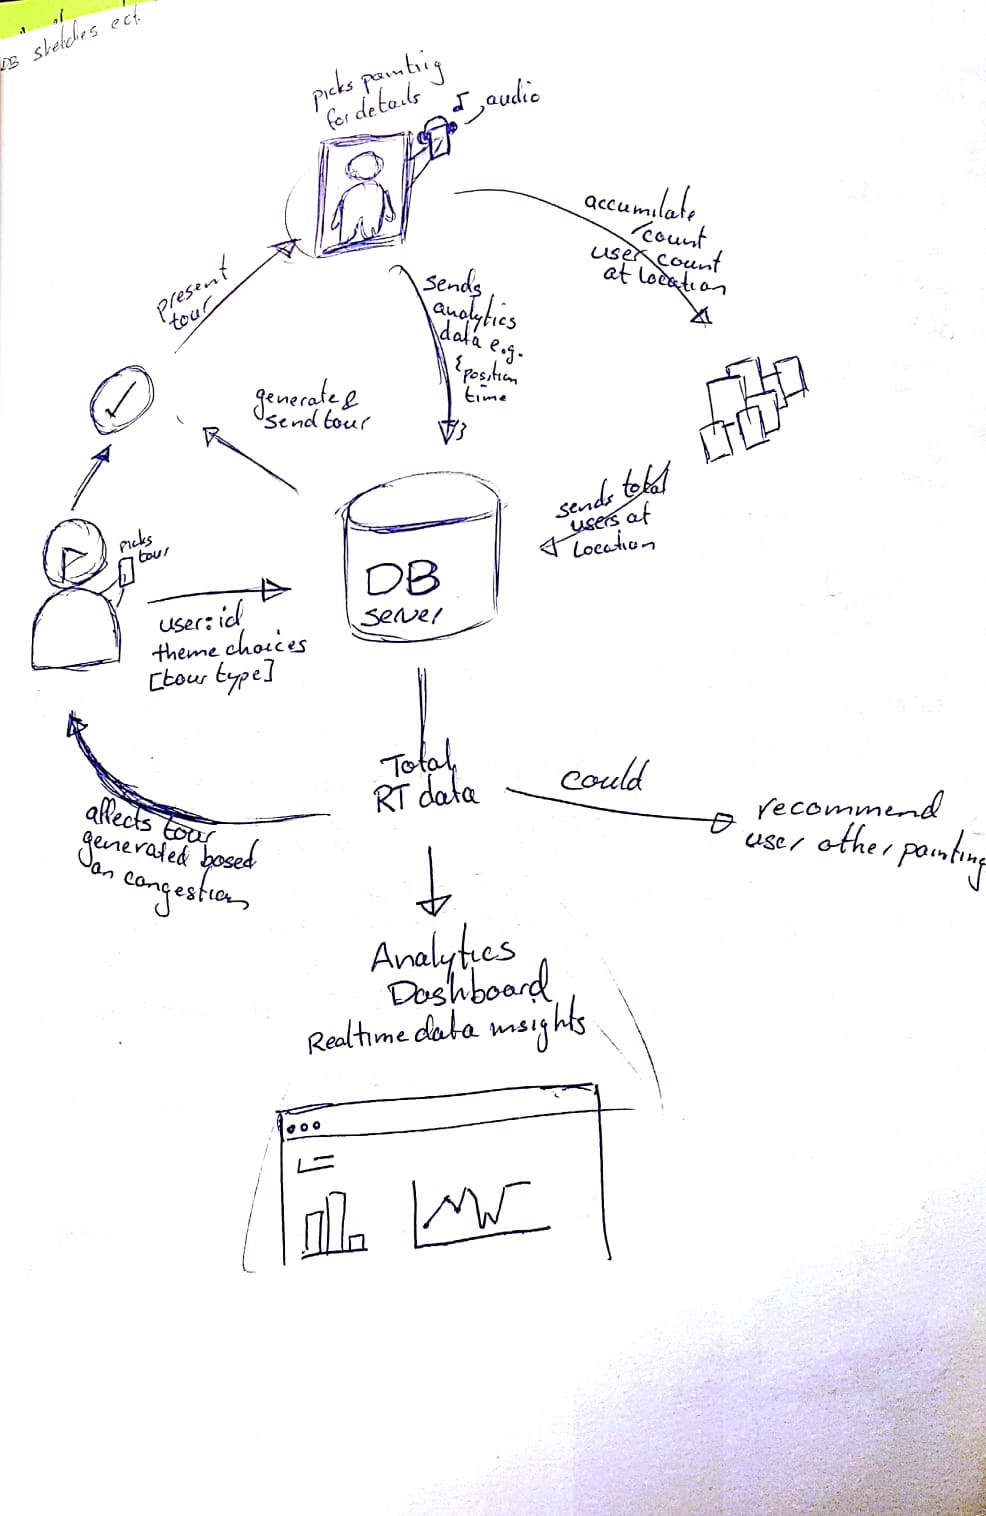 DB sketches ect.
picks painting
for details
audio
accumilate
count
user count
at location
present
tour
sends
analytics
data e.g.
{position
time
}
generate &
send tour
picks
tour
sends total
users at
Location
DB
server
user:id
theme choices
[tour type]
Total
RT data
could
recommend
user other painting
affects tour
generated based
on congestion
Analytics
Dashboard
Realtime data insights